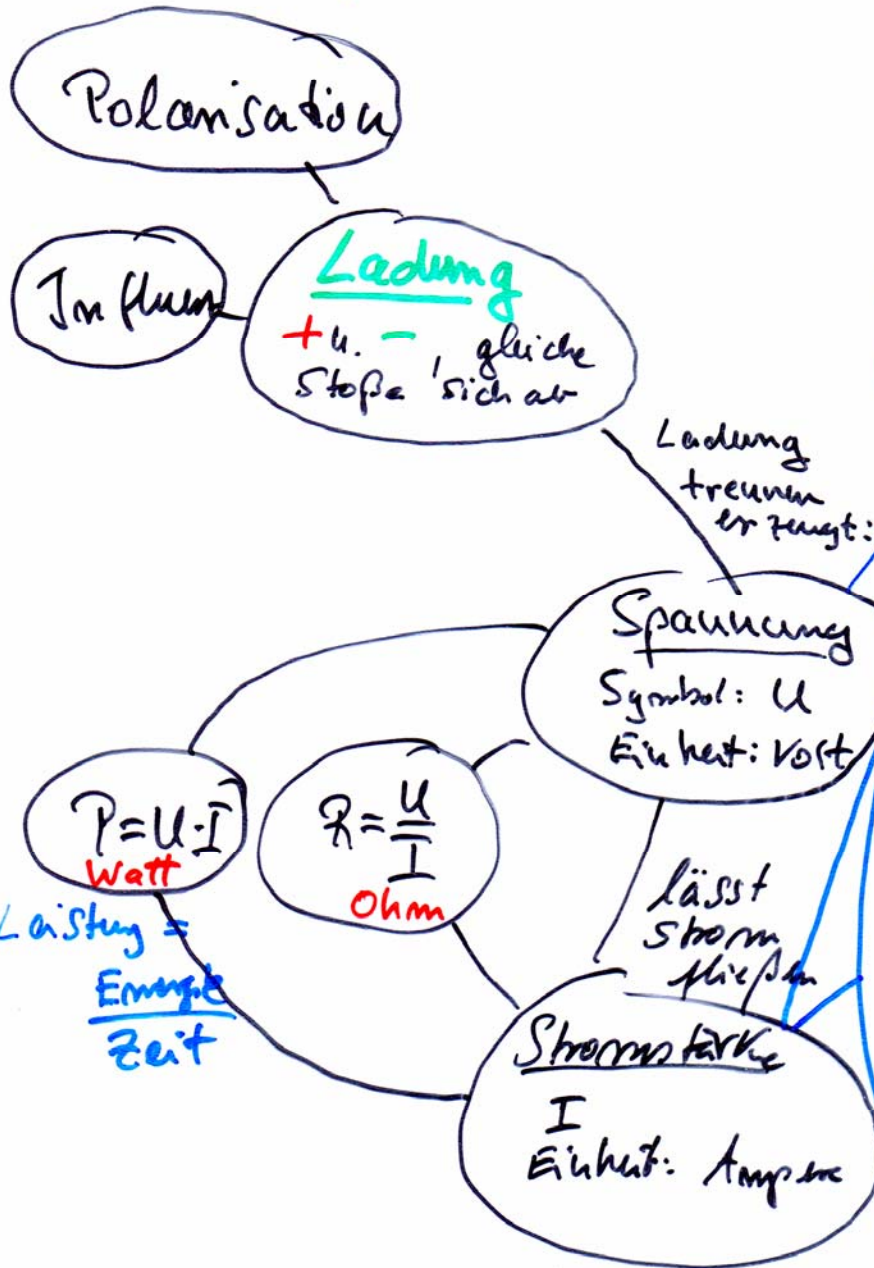 Polarisation
Influenz
Ladung
+ u. - , gleiche
stoße sich ab
Ladung
trennen
erzeugt:
Spannung
Symbol: U
Einheit: Volt
P=U·I
Watt
R=U/I
Ohm
Leistung =
Energie
Zeit
lässt
strom
fließen
Stromstärke
I
Einheit: Ampere